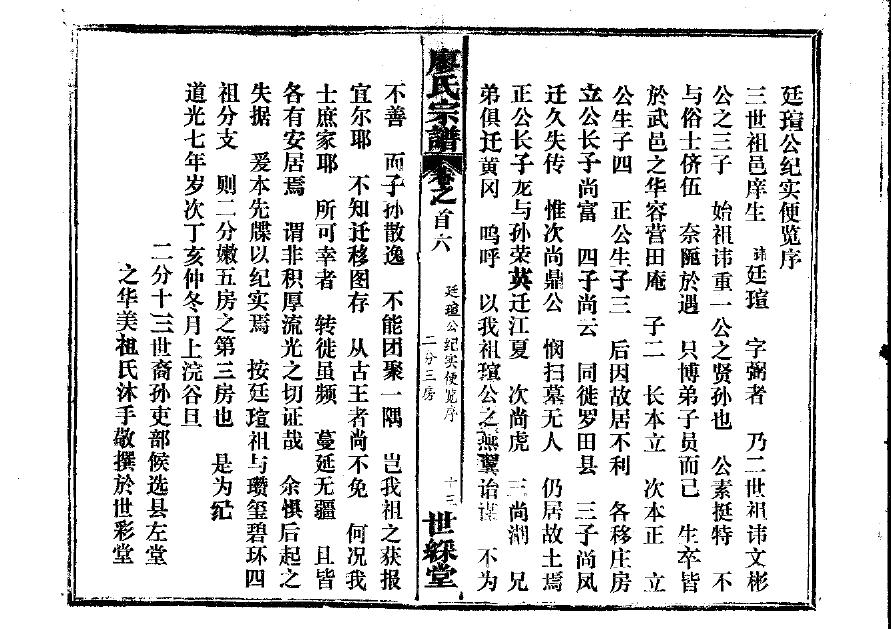 廷瑄公纪实便览序
三世祖邑庠生 讳廷瑄 字弼者 乃二世祖讳文彬
公之三子 始祖讳重一公之贤孙也 公素挺特 不
与俗士侪伍 奈阨於遇 只博弟子员而已 生卒皆
於武邑之华容营田庵 子二 长本立 次本正 立
公生子四 正公生子三 后因故居不利 各移庄房
立公长子尚富 四子尚云 同徙罗田县 三子尚凤
迁久失传 惟次尚鼎公 悯扫墓无人 仍居故土焉
正公长子龙与孙荣英迁江夏 次尚虎 三尚潮 兄
弟俱迁黄冈 呜呼 以我祖瑄公之燕翼诒谋 不为
廖氏宗譜 卷之首六 廷瑄公纪实便览序 二分三房 十三 世綵堂
不善 而子孙散逸 不能团聚一隅 岂我祖之获报
宜尔耶 不知迁移图存 从古王者尚不免 何况我
士庶家耶 所可幸者 转徙虽频 蔓延无疆 且皆
各有安居焉 谓非积厚流光之切证哉 余惧后起之
失据 爰本先牒以纪实焉 按廷瑄祖与瓒玺碧环四
祖分支 则二分嫩五房之第三房也 是为纪
道光七年岁次丁亥仲冬月上浣谷旦
二分十三世裔孙吏部候选县左堂
之华美祖氏沐手敬撰於世彩堂